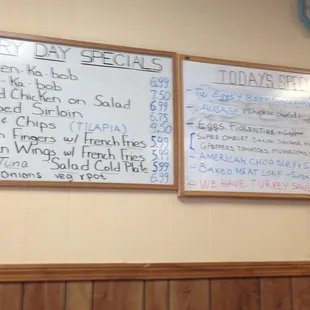 RY DAY SPECIALS
en-Ka-bob 6.99
-Ka-bob 7.50
d Chicken on Salad 6.99
Sirloin 6.75
& Chips (TILAPIA) 9.50
n Fingers w/ French Fries 5.99
n Wings w/ French Fries 5.99
Tuna Salad Cold Plate 5.99
onions veg 6.99
TODAYS SPECI
Eggs
SAUSAGE
Eggs FLORENTINE
SUPER OMELET BACON SAUSAGE
PEPPERS TOMATOES MUSHROOMS
AMERICAN CHOP SUEY
BAKED MEAT LOAF
WE HAVE TURKEY